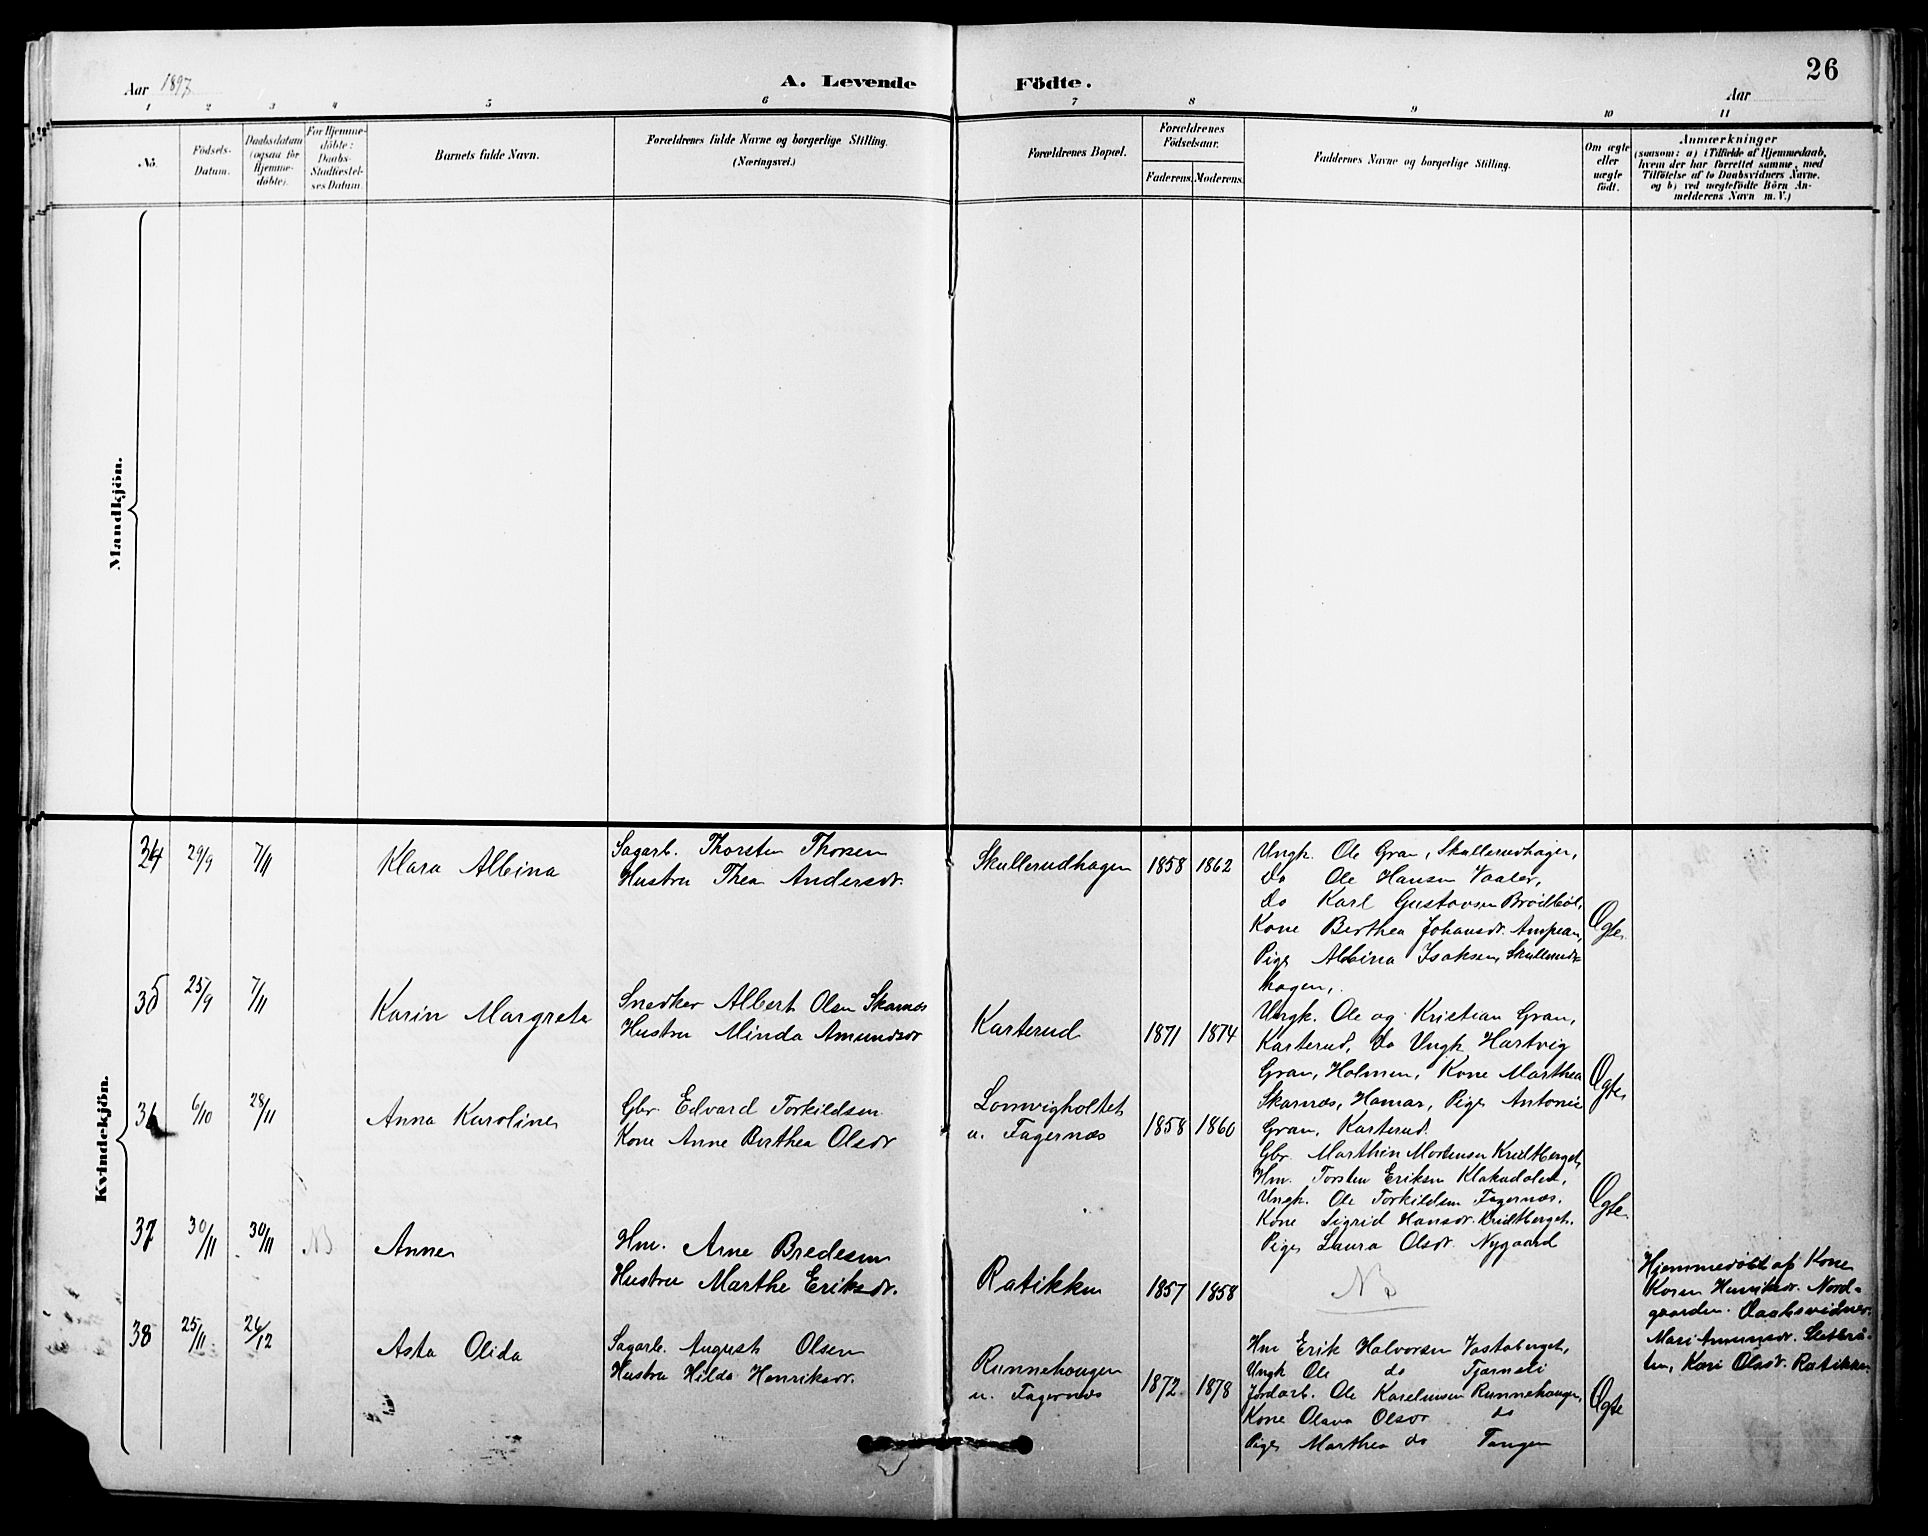 26
Aar 1897
A. Levende Födte.
Aar
1 2 3 4 5 6 7 8 9 10 11
No.
Födsels-Datum.
Daabsdatum (ogsaa for Hjemme-döbte).
For Hjemme-döbte: Daabs-Stadfæstel-ses Datum.
Barnets fulde Navn.
Forældrenes fulde Navne og borgerlige Stilling. (Næringsvei.)
Forældrenes Bopæl.
Forældrenes Födselsaar.
Faderens. Moderens.
Faddernes Navne og borgerlige Stilling.
Om ægte eller uægte födt.
Anmærkninger
(saasom: a) i Tilfælde af Hjemmedaab,
hvem der har forrettet samme, med
Tilföielse af to Daabsvidners Navne.
og b) ved uægtefödte Börn An-
melderens Navn m. V.)
Mandkjön.
Kvindekjön.
34 29/9 7/11 Klara Albina
Sagarb. Thorsten Thorsen
Hustru Thea Andersdr.
Skullerudhagen 1858 1862
Ungk. Ole Gran, Skullerudhagen,
Do Ole Hansen Vaaler,
Do Karl Gustavsen Bröilböl,
Kone Berthea Johansdr.
Pige Albina Isaksen, Skullerud-
hagen,
Ægte
35 25/9 7/11 Karin Margreta
Snedker Albert Olsen Skarnæs
Hustru Minda Amundsdr
Karterud 1871 1874
Ungk. Ole og Kristian Gran,
Karterud, do Ungk. Hartvig
Gran, Holmen, Kone Marthea
Skarnæs, Hamar, Pige Antonie
Gran, Karterud.
Ægte
36 6/10 28/11 Anna Karoline
Gbr. Edvard Torkildsen
Kone Anne Berthea Olsdr
Lomvigholtet
u. Fagernæs
1858 1860
Gbr. Marthin Mortensen Kridtberget,
Hm. Torsten Eriksen Klakadalen,
Ungk. Ole Torkildsen Fagernæs.
Kone Sigrid Hansdr. Kridtberget.
Pige Laura Olsdr. Nygaard
Ægte
37 30/11 30/11 NB Anne
Hm. Arne Bredesen
Hustru Marthe Eriksdr.
Ratikken 1857 1858
NB
Hjemmedöbt af Kone
Karen Henriksdr. Nord-
gaarden. Daabsvidner.
Mari Amundsdr.
Kari Olsdr. Ratikken
38 25/11 26/12 Asta Olida
Sagarb. August Olsen
Hustru Hilda Henriksdr.
Runnehaugen
u. Fagernæs
1872 1878
Hm Erik Halvorsen Vastaberget,
Ungk Ole do Tjernsli
Jordarb. Ole Kareliusen Runnehaugen,
Kone Olava Olsdr do
Pige Marthea do Tangen
Ægte